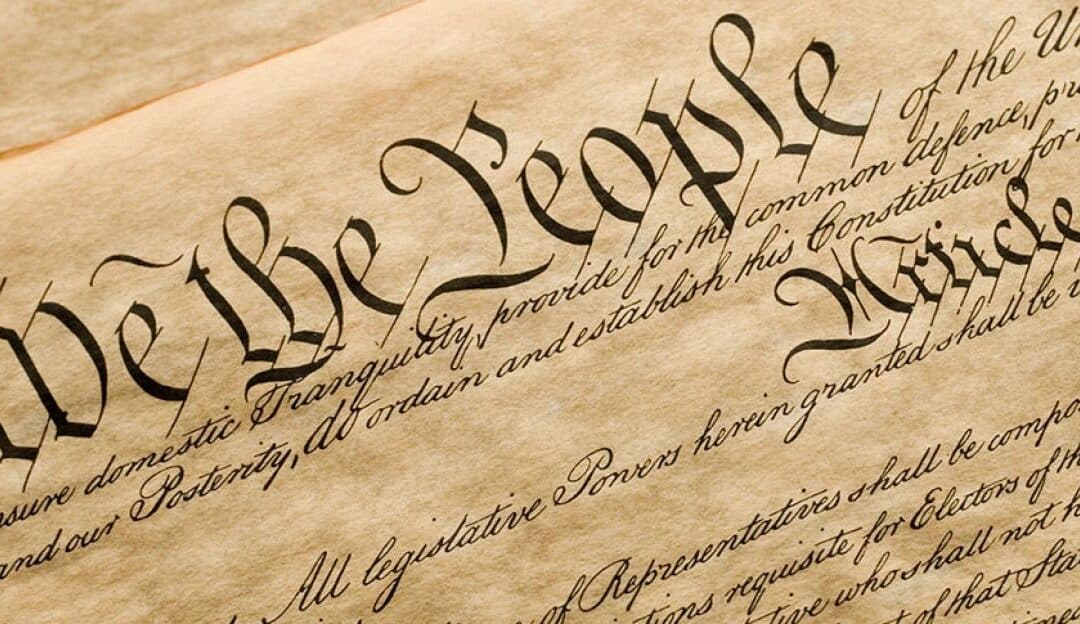 We the People of the Un
nsure domestic Tranquility, provide for the common defence, pro
and our Posterity, do ordain and establish this Constitution for
Article
All legislative Powers herein granted shall be v
of Representatives shall be compo
tions requisite for Electors of th
tive who shall not h
t of that Sta